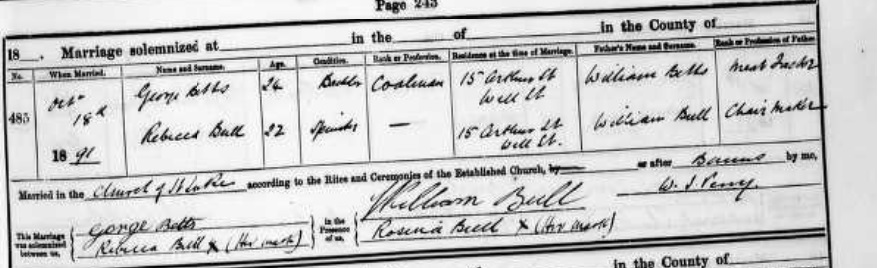 Page 243
18 . Marriage solemnized at in the of in the County of
No. When Married. Name and Surname. Age. Condition. Rank or Profession. Residence at the time of Marriage. Father's Name and Surname. Rank or Profession of Father.
Octr 18th George Betts 24 Bachlr Coalman 15 Arthur St Well St. William Betts Meat
485
1891 Rebecca Bull 22 Spinster — 15 Arthur St Well St. William Bull Chair Maker
Married in the Church of St Lukes according to the Rites and Ceremonies of the Established Church, by or after Banns by me,
This Marriage was solemnized between us, George Betts Rebecca Bull x (Her mark) In the Presence of us, William Bull Rosena Bull x (Her mark) W. J. Perry.
in the County of